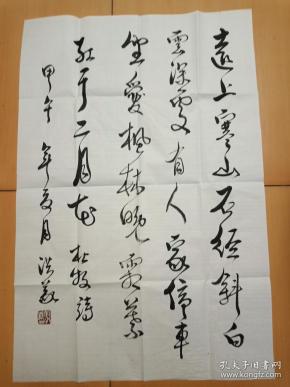 遠上寒山石徑斜白
雲深處有人家停車
坐愛楓林晚霜葉
紅于二月花 杜牧詩
甲午年夏月洪義
孔夫子旧书网